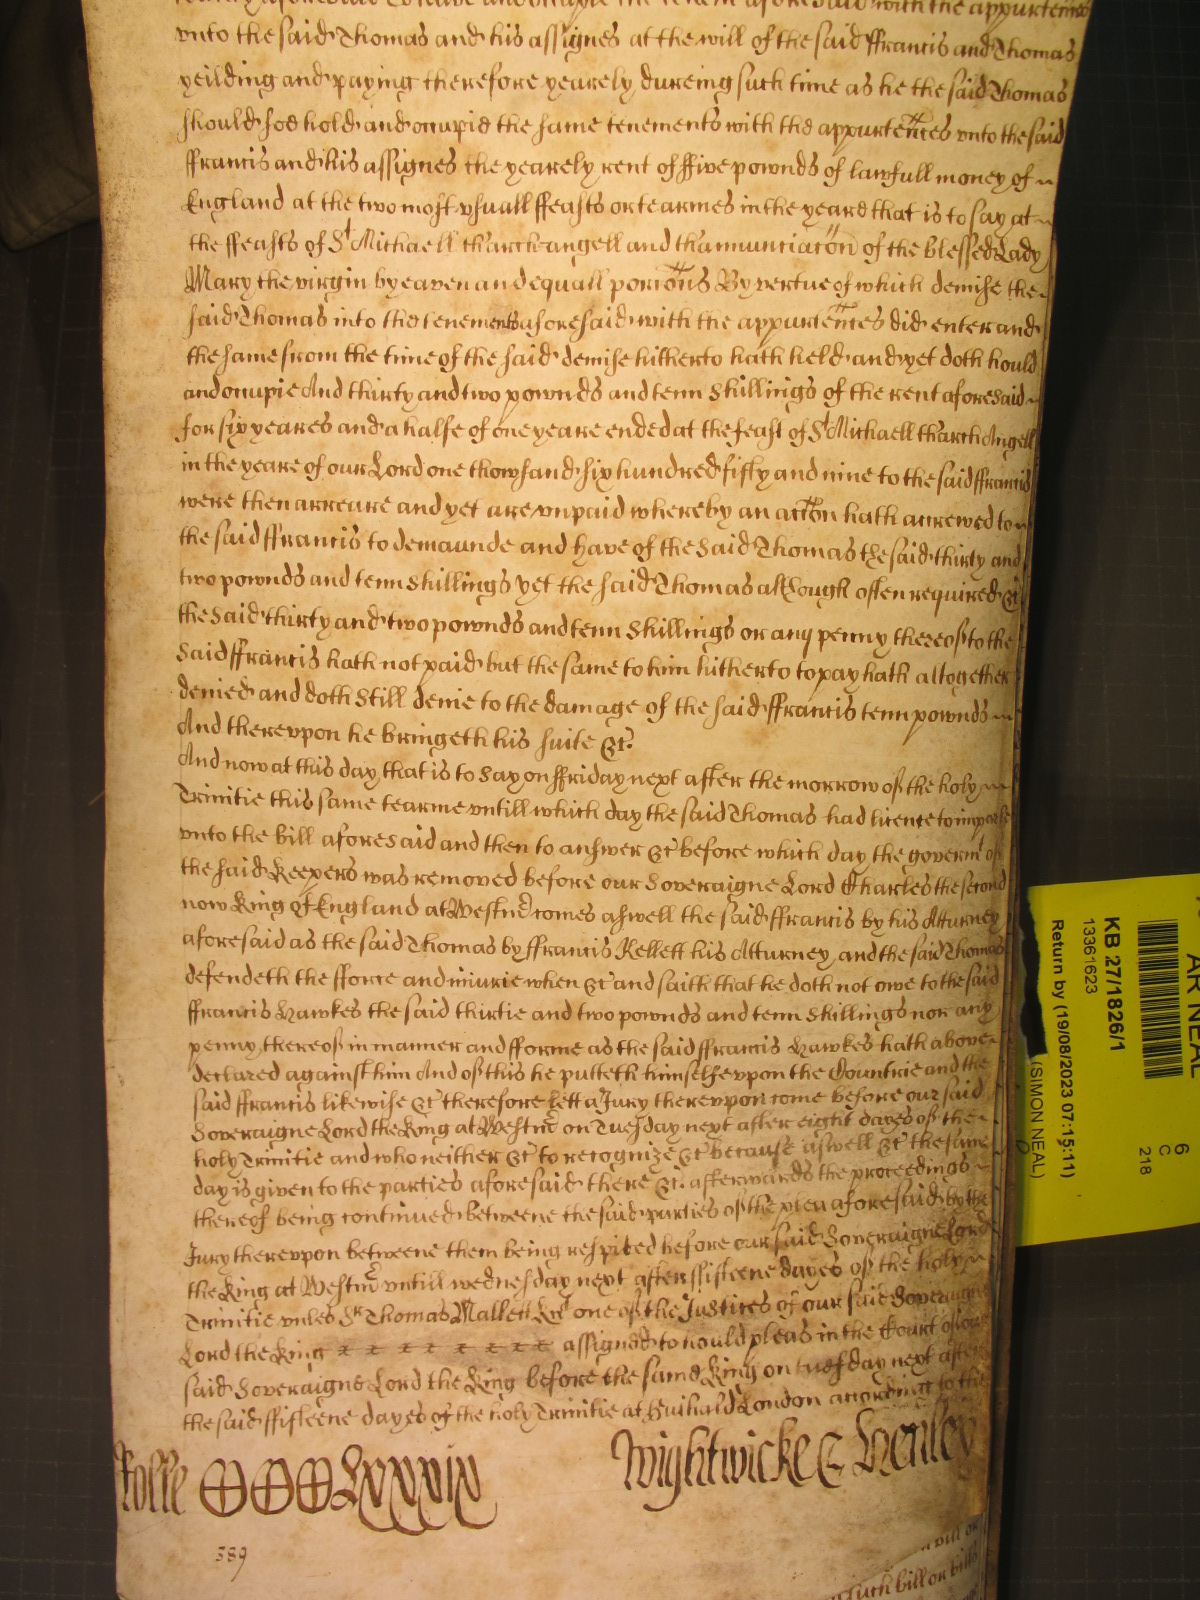 to have and occupie the tenem aforesaid with the appurtences
vnto the said Thomas and his assignes at the will of the said ffrancis and Thomas
yeilding and paying therefore yearely dureing such time as he the said Thomas
should soe hold and occupie the same tenements with the appurtences vnto the said
ffrancis and his assignes the yearely rent of ffive pownds of lawfull money of
England at the two most vsuall ffeasts or tearmes in the yeare that is to say at
the ffeasts of St Michaell tharchangell and thannunciacon of the blessed Lady
Mary the virgin by eaven and equall porcons By vertue of which demise the
said Thomas into the tenements aforesaid with the appurtences did enter and
the same from the time of the said demise hitherto hath held and yet doth hould
and occupie And thirty and two pownds and tenn shillings of the rent aforesaid
for six yeares and a halfe of one yeare ended at the feast of St Michaell tharchAngell
in the yeare of our Lord one thowsand six hundred fifty and nine to the said ffrancis
were then arreare and yet are vnpaid whereby an accon hath accrewed to
the said ffrancis to demaunde and have of the said Thomas the said thirty and
two pownds and tenn shillings yet the said Thomas although often required &c
the said thirty and two pownds and tenn shillings or any penny thereof to the
said ffrancis hath not paid but the same to him hitherto to pay hath altogether
denied and doth still denie to the damage of the said ffrancis tenn pownds
And therevpon he bringeth his suite &c.
And now at this day that is to say on ffriday next after the morrow of the holy
Trinitie this same tearme vntill which day the said Thomas had licence to imparle
vnto the bill aforesaid and then to answer &c before which day the governt of
the said Keepers was removed before our Soveraigne Lord Charles the second
now King of England at Westmr comes aswell the said ffrancis by his Atturney
aforesaid as the said Thomas by ffrancis Kellett his Atturney and the said Thomas
defendeth the fforce and iniurie when &c and saith that he doth not owe to the said
ffrancis Hawkes the said thirtie and two pownds and tenn shillings nor any
penny thereof in manner and fforme as the said ffrancis Hawkes hath above
declared against him And of this he putteth himselfe vpon the Countrie and the
said ffrancis likewise &c therefore lett a Jury therevpon come before our said
Soveraigne Lord the King at Westmr on Tuesday next after eight dayes of the
holy Trinitie and who neither &c to recognize &c because aswell &c the same
day is given to the parties aforesaid there &c. afterwards the proceedings
thereof being continued betweene the said parties of the plea aforesaid by the
Jury therevpon betweene them being respited before our said Soveraigne Lord
the King at Westmr vntill wednesday next after ffifteene dayes of the holy
Trinitie vnles Sr Thomas Mallett Knt one of the Justices of our said Soveraigne
Lord the King assigned to hould pleas in the Court of our
said Soveraigne Lord the King before the same King on tuesday next after
the said ffifteene dayes of the holy Trinitie at Guihald London according to the
Rolle CCCLxxxix Wightwicke & Henley
389
vill or
such bill or bills
AR NEAL
KB 27/1826/1
13361623
Return by (19/08/2023 07:15:11)
(SIMON NEAL)
6
C
218